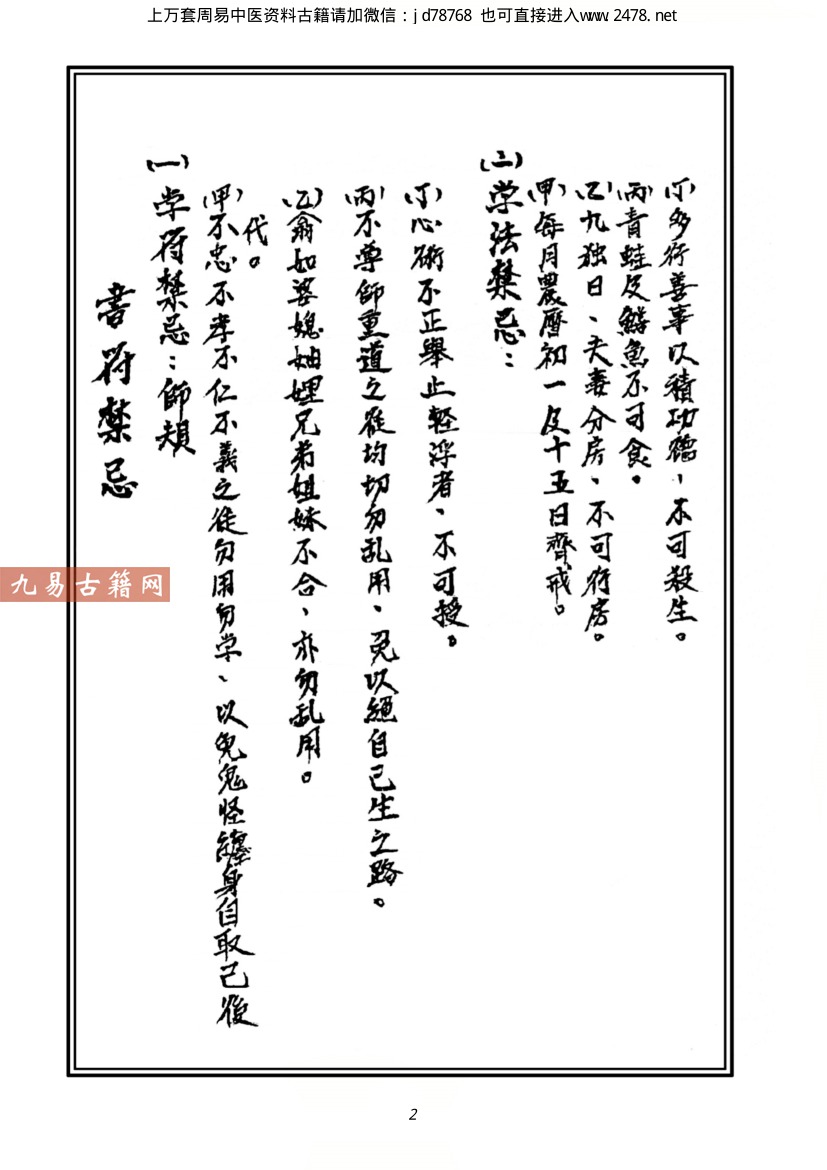 上万套周易中医资料古籍请加微信：jd78768 也可直接进入www.2478.net
書符禁忌
(一) 学符禁忌：師規
(甲) 不忠不孝不仁不義之徒勿用勿学、以免鬼怪纏身自取己後
代。
(乙) 翁如婆媳妯娌兄弟姐妹不合、亦勿乱用。
(丙) 不尊師重道之徒均切勿乱用、免以絕自己生之路。
(丁) 心術不正舉止軽浮者、不可授。
(二) 学法禁忌：
(甲) 每月農曆初一及十五日齊戒。
(乙) 九独日、夫妻分房、不可行房。
(丙) 青蛙及鱔魚不可食。
(丁) 多行善事以積功德，不可殺生。
九易古籍网
2